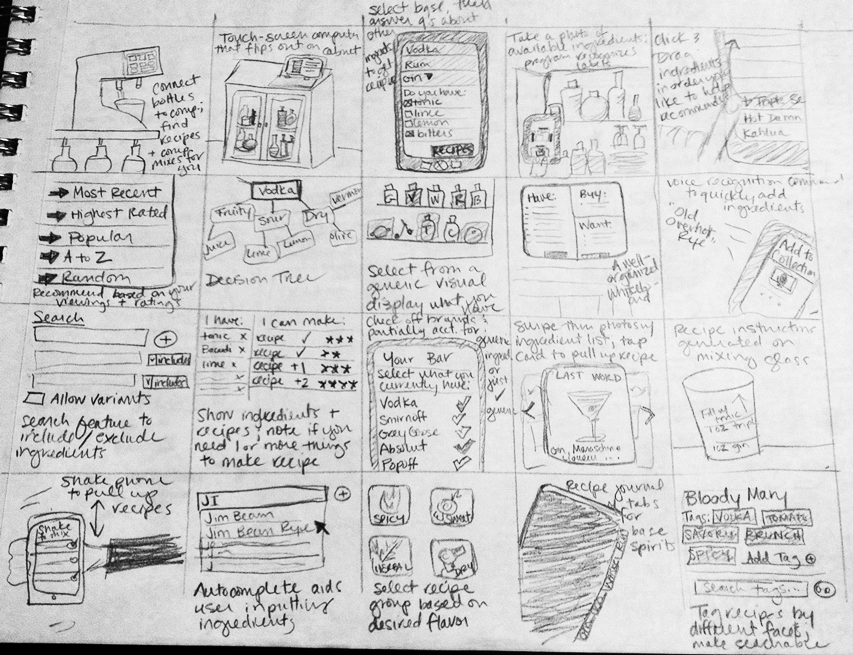 Connect
bottles
to comp;
find
recipes
mixes for
you
Touch-screen computer
that flips out on cabinet
select base, then
answer q's about
other
to get
Vodka
Rum
Gin
Do you have:
tonic
lime
lemon
bitters
RECIPES
Take a photo of
available ingredients;
program recognizes
labels
Click &
Drag
ingredients
in order you
like to help
recommend
Triple Se
Hot Damn
Kahlua
Most Recent
Highest Rated
Popular
A to Z
Random
Recommend based on your
viewings + ratings
Vodka
Fruity
Sour
Dry
Juice
Lime
Lemon
olive
Decision Tree
G V W R B
T C
Select from a
generic visual
display what you have
Have:
Buy:
Want
A well-
organized
whiteboard
Voice recognition command
to quickly add
ingredients
"Old
Overholt
Rye"
Add to
Collection
Search
include
include
Allow variants
Search feature to
include/exclude
ingredients
I have:
tonic x
Bacardi x
lime x
I can make:
recipe ✓ ★★★
recipe ✓ ★★
recipe +1 ★★★
recipe +2 ★★★★
Show ingredients +
recipes; note if you
need 1 or more things
to make recipe
Check off brands;
partially acct. for
generic
or
just
generic
Your Bar
Select what you
currently have:
Vodka
Smirnoff
Grey Goose
Absolut
Popoff
Swipe thru photos w/
ingredient list, tap
card to pull up recipe
LAST WORD
Gin, Maraschino
Recipe instructions
generated on
mixing glass
Fill w/
tonic
1 oz trip
1 oz gin
Shake phone
to pull up
recipes
Shake
& mix
JI
Jim Beam
Jim Beam Rye
Autocomplete aids
user inputting
ingredients
SPICY
SWEET
HERBAL
DRY
Select recipe
group based on
desired flavor
Recipe journal
tabs
for
base
spirits
Bloody Mary
Tags: VODKA TOMATO
SAVORY BRUNCH
SPICY Add Tag +
search tags... Go
Tag recipes by
different facets,
make searchable